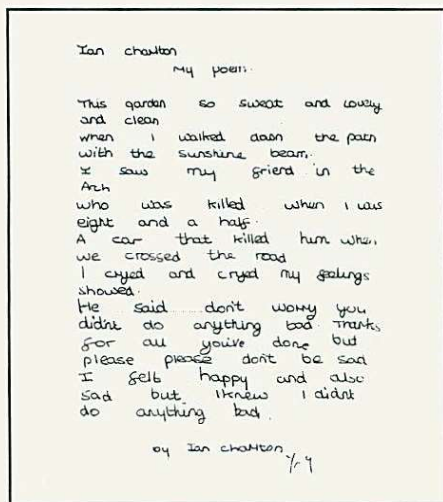 Ian Charlton
My poem.
This garden so sweat and lovely
and clean
when I walked daon the path
with the sunshine beam.
I saw my friend in the
Arch
who was killed when I was
eight and a half.
A car that killed him when
we crossed the road
I cryed and cryed my feelings
showed.
He said don't worry you
didnt do anything bad. Thanks
for all youve done but
please please dont be sad
I felt happy and also
sad but I knew I didnt
do anything bad.
by Ian Charlton
Yr 4